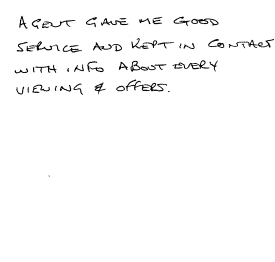 AGENT GAVE ME GOOD
SERVICE AND KEPT IN CONTACT
WITH INFO ABOUT EVERY
VIEWING & OFFERS.